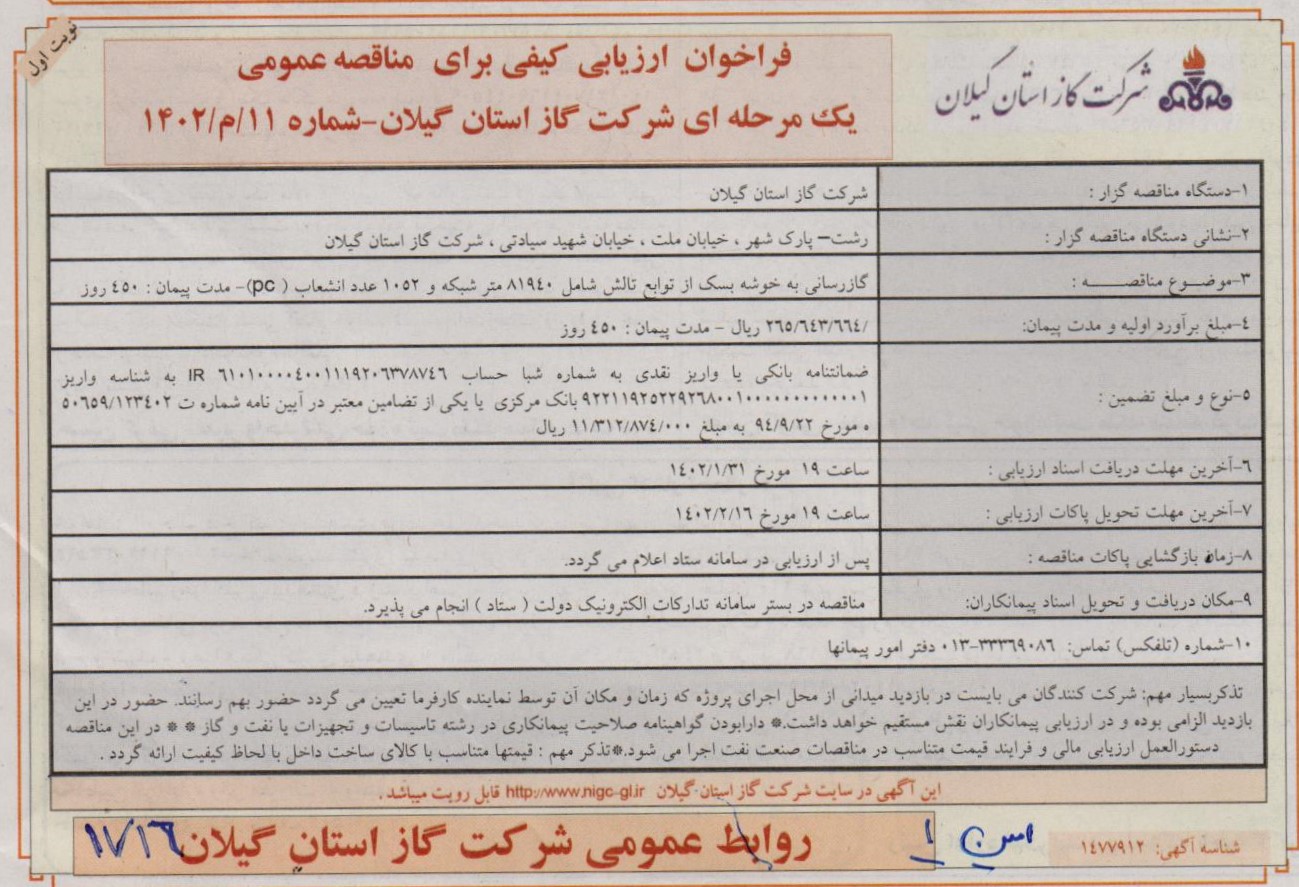 نوبت اول
شرکت گاز استان گیلان
فراخوان ارزیابی کیفی برای مناقصه عمومی
یک مرحله ای شرکت گاز استان گیلان-شماره ۱۱/م/۱۴۰۲
۱-دستگاه مناقصه گزار :
شرکت گاز استان گیلان
۲-نشانی دستگاه مناقصه گزار :
رشت– پارک شهر ، خیابان ملت ، خیابان شهید سیادتی ، شرکت گاز استان گیلان
۳-موضـــوع مناقصـــــــه :
گازرسانی به خوشه بسک از توابع تالش شامل ۸۱۹۴۰ متر شبکه و ۱۰۵۲ عدد انشعاب ( pc)- مدت پیمان : ۴۵۰ روز
۴-مبلغ برآورد اولیه و مدت پیمان:
/۲۶۵/۶۴۳/۶۶۴ ریال - مدت پیمان : ۴۵۰ روز
۵-نوع و مبلغ تضمین :
ضمانتنامه بانکی یا واریز نقدی به شماره شبا حساب IR ۶۱۰۱۰۰۰۰۴۰۰۱۱۱۹۲۰۶۳۷۸۷۴۶ به شناسه واریز
۹۲۲۱۱۹۲۵۲۲۹۲۶۸۰۰۱۰۰۰۰۰۰۰۰۰۰۰۰۱ بانک مرکزی یا یکی از تضامین معتبر در آیین نامه شماره ت ۵۰۶۵۹/۱۲۳۴۰۲
ه مورخ ۹۴/۹/۲۲ به مبلغ ۱۱/۳۱۲/۸۷۴/۰۰۰ ریال
۶-آخرین مهلت دریافت اسناد ارزیابی :
ساعت ۱۹ مورخ ۱۴۰۲/۱/۳۱
۷-آخرین مهلت تحویل پاکات ارزیابی :
ساعت ۱۹ مورخ ۱۴۰۲/۲/۱۶
۸-زمان بازگشایی پاکات مناقصه :
پس از ارزیابی در سامانه ستاد اعلام می گردد.
۹-مکان دریافت و تحویل اسناد پیمانکاران:
مناقصه در بستر سامانه تدارکات الکترونیک دولت ( ستاد ) انجام می پذیرد.
۱۰-شماره (تلفکس) تماس: ۳۳۳۶۹۰۸۶-۰۱۳ دفتر امور پیمانها
تذکربسیار مهم: شرکت کنندگان می بایست در بازدید میدانی از محل اجرای پروژه که زمان و مکان آن توسط نماینده کارفرما تعیین می گردد حضور بهم رسانند. حضور در این
بازدید الزامی بوده و در ارزیابی پیمانکاران نقش مستقیم خواهد داشت.* دارابودن گواهینامه صلاحیت پیمانکاری در رشته تاسیسات و تجهیزات یا نفت و گاز * * در این مناقصه
دستورالعمل ارزیابی مالی و فرایند قیمت متناسب در مناقصات صنعت نفت اجرا می شود.*تذکر مهم : قیمتها متناسب با کالای ساخت داخل با لحاظ کیفیت ارائه گردد .
این آگهی در سایت شرکت گاز استان گیلان http://www.nigc-gl.ir قابل رویت میباشد .
شناسه آگهی: ۱۴۷۷۹۱۲
روابط عمومی شرکت گاز استان گیلان
۱۷۱۶